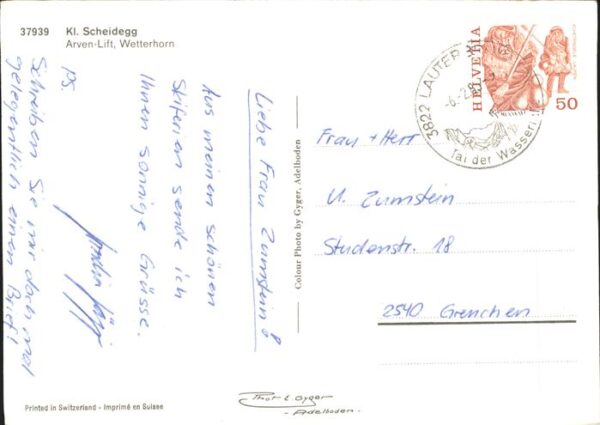 37939 Kl. Scheidegg
Arven-Lift, Wetterhorn
Liebe Frau Zumstein &
Aus meinen schönen
Skiferien sende ich
Ihnen sonnige Grüsse.
PS
Schreiben Sie mir doch mal
gelegentlich einen Brief!
Colour Photo by Gyger, Adelboden
HELVETIA
50
3822 LAUTER
Tal der Wasser
Frau + Herr
U. Zumstein
Studenstr. 18
2540 Grenchen
Printed in Switzerland - Imprimé en Suisse
Gyger
- Adelboden -